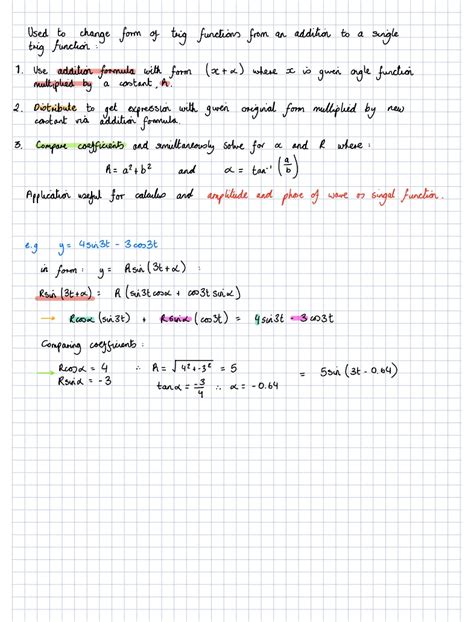 Used to change form of trig functions from an addition to a single
trig function:
1. Use addition formula with form (x+α) where x is given angle function
multiplied by a constant, A.
2. Distribute to get expression with given original form multiplied by new
constant via addition formula.
3. Compare coefficients and simultaneously solve for α and R where:
A = a²+b² and α = tan⁻¹ (a/b)
Application useful for calculus and amplitude and phase of wave or singal function.
e.g y = 4sin3t - 3cos3t
in form: y = Rsin (3t+α) :
Rsin (3t+α) = R (sin3t cosα + cos3t sinα)
→ Rcosα (sin3t) + Rsinα (cos3t) = 4sin3t - 3cos3t
Comparing coefficients:
→ Rcosα = 4 ∴ A = √4²+-3² = 5 = 5sin (3t - 0.64)
Rsinα = -3 tanα = -3/4 ∴ α = -0.64